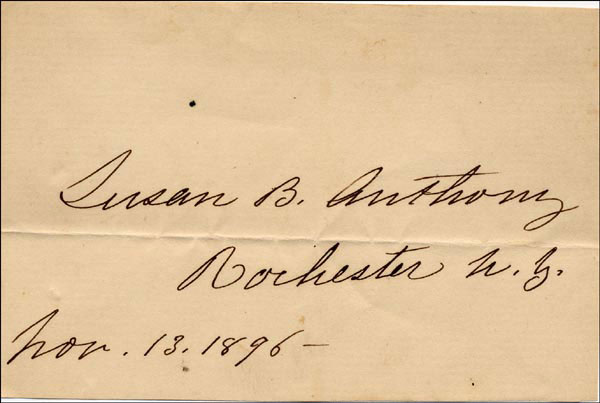 Susan B. Anthony
Rochester N. Y.
Nov. 13. 1896 -